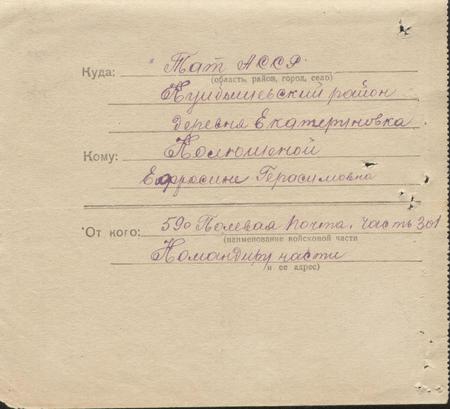 Куда: Тат АССР
(область, район, город, село)
Куйбышевский район
деревня Екатериновка
Кому: Полюшеной
Ефросине Герасимовна
От кого: 590 Полевая почта, часть 301
(наименование войсковой части
Командиру части
и ее адрес)